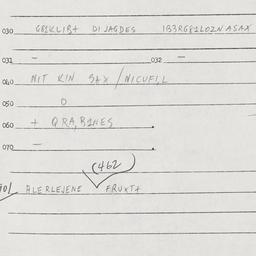 030 GBIKLIB+ DIJAGDES IB3RG81LOZNASAX
031 - 032 -
040 NIT KIN SAX/NICUFIL
050 O
060 + QRA,BINES
070 -
(462)
ALERLEJENE FRUXT+